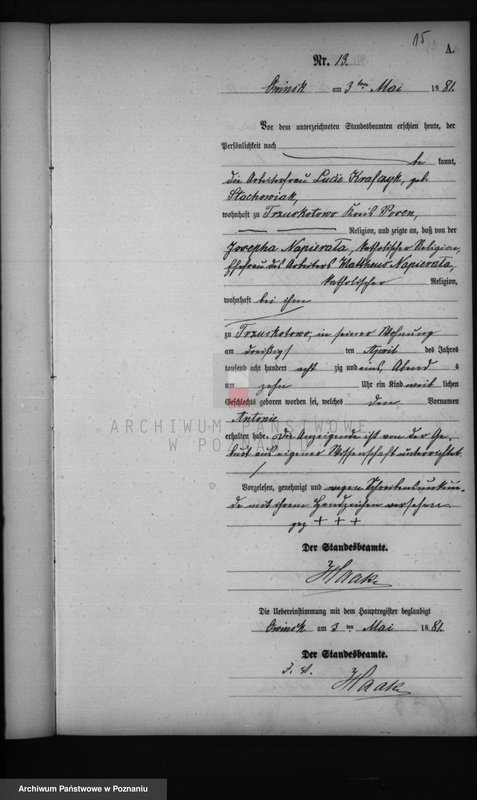 15
A.
Nr. 13.
Owinsk am 3 ten Mai 1881.
Vor dem unterzeichneten Standesbeamten erschien heute, der
Persönlichkeit nach
be kannt,
die Arbeiterfrau Lucie Krafczyk, geb.
Stachowiak,
wohnhaft zu Trzuskotowo Kreis Posen,
Religion, und zeigte an, daß von der
Josepha Napierata, katholischer Religion,
Ehefrau des Arbeiters Mattheus Napierata,
katholischer Religion,
wohnhaft bei ihm
zu Trzuskotowo, in seiner Wohnung
am dreißigsten April des Jahres
tausend acht hundert acht zig und eins, Abends
um zehn Uhr ein Kind weib lichen
Geschlechts geboren worden sei, welches den Vornamen
Antonie
erhalten habe. Die Anzeigende ist von der Ge-
burt aus eigener Wissenschaft unterrichtet.
Vorgelesen, genehmigt und wegen Schreibensunkun-
de mit ihrem Handzeichen versehen
gez + + +
Der Standesbeamte.
Haak
Die Uebereinstimmung mit dem Hauptregister beglaubigt
Owinsk am 3 ten Mai 1881.
Der Standesbeamte.
Haak
ARCHIWUM PAŃSTWOWE
W POZNANIU
Archiwum Państwowe w Poznaniu